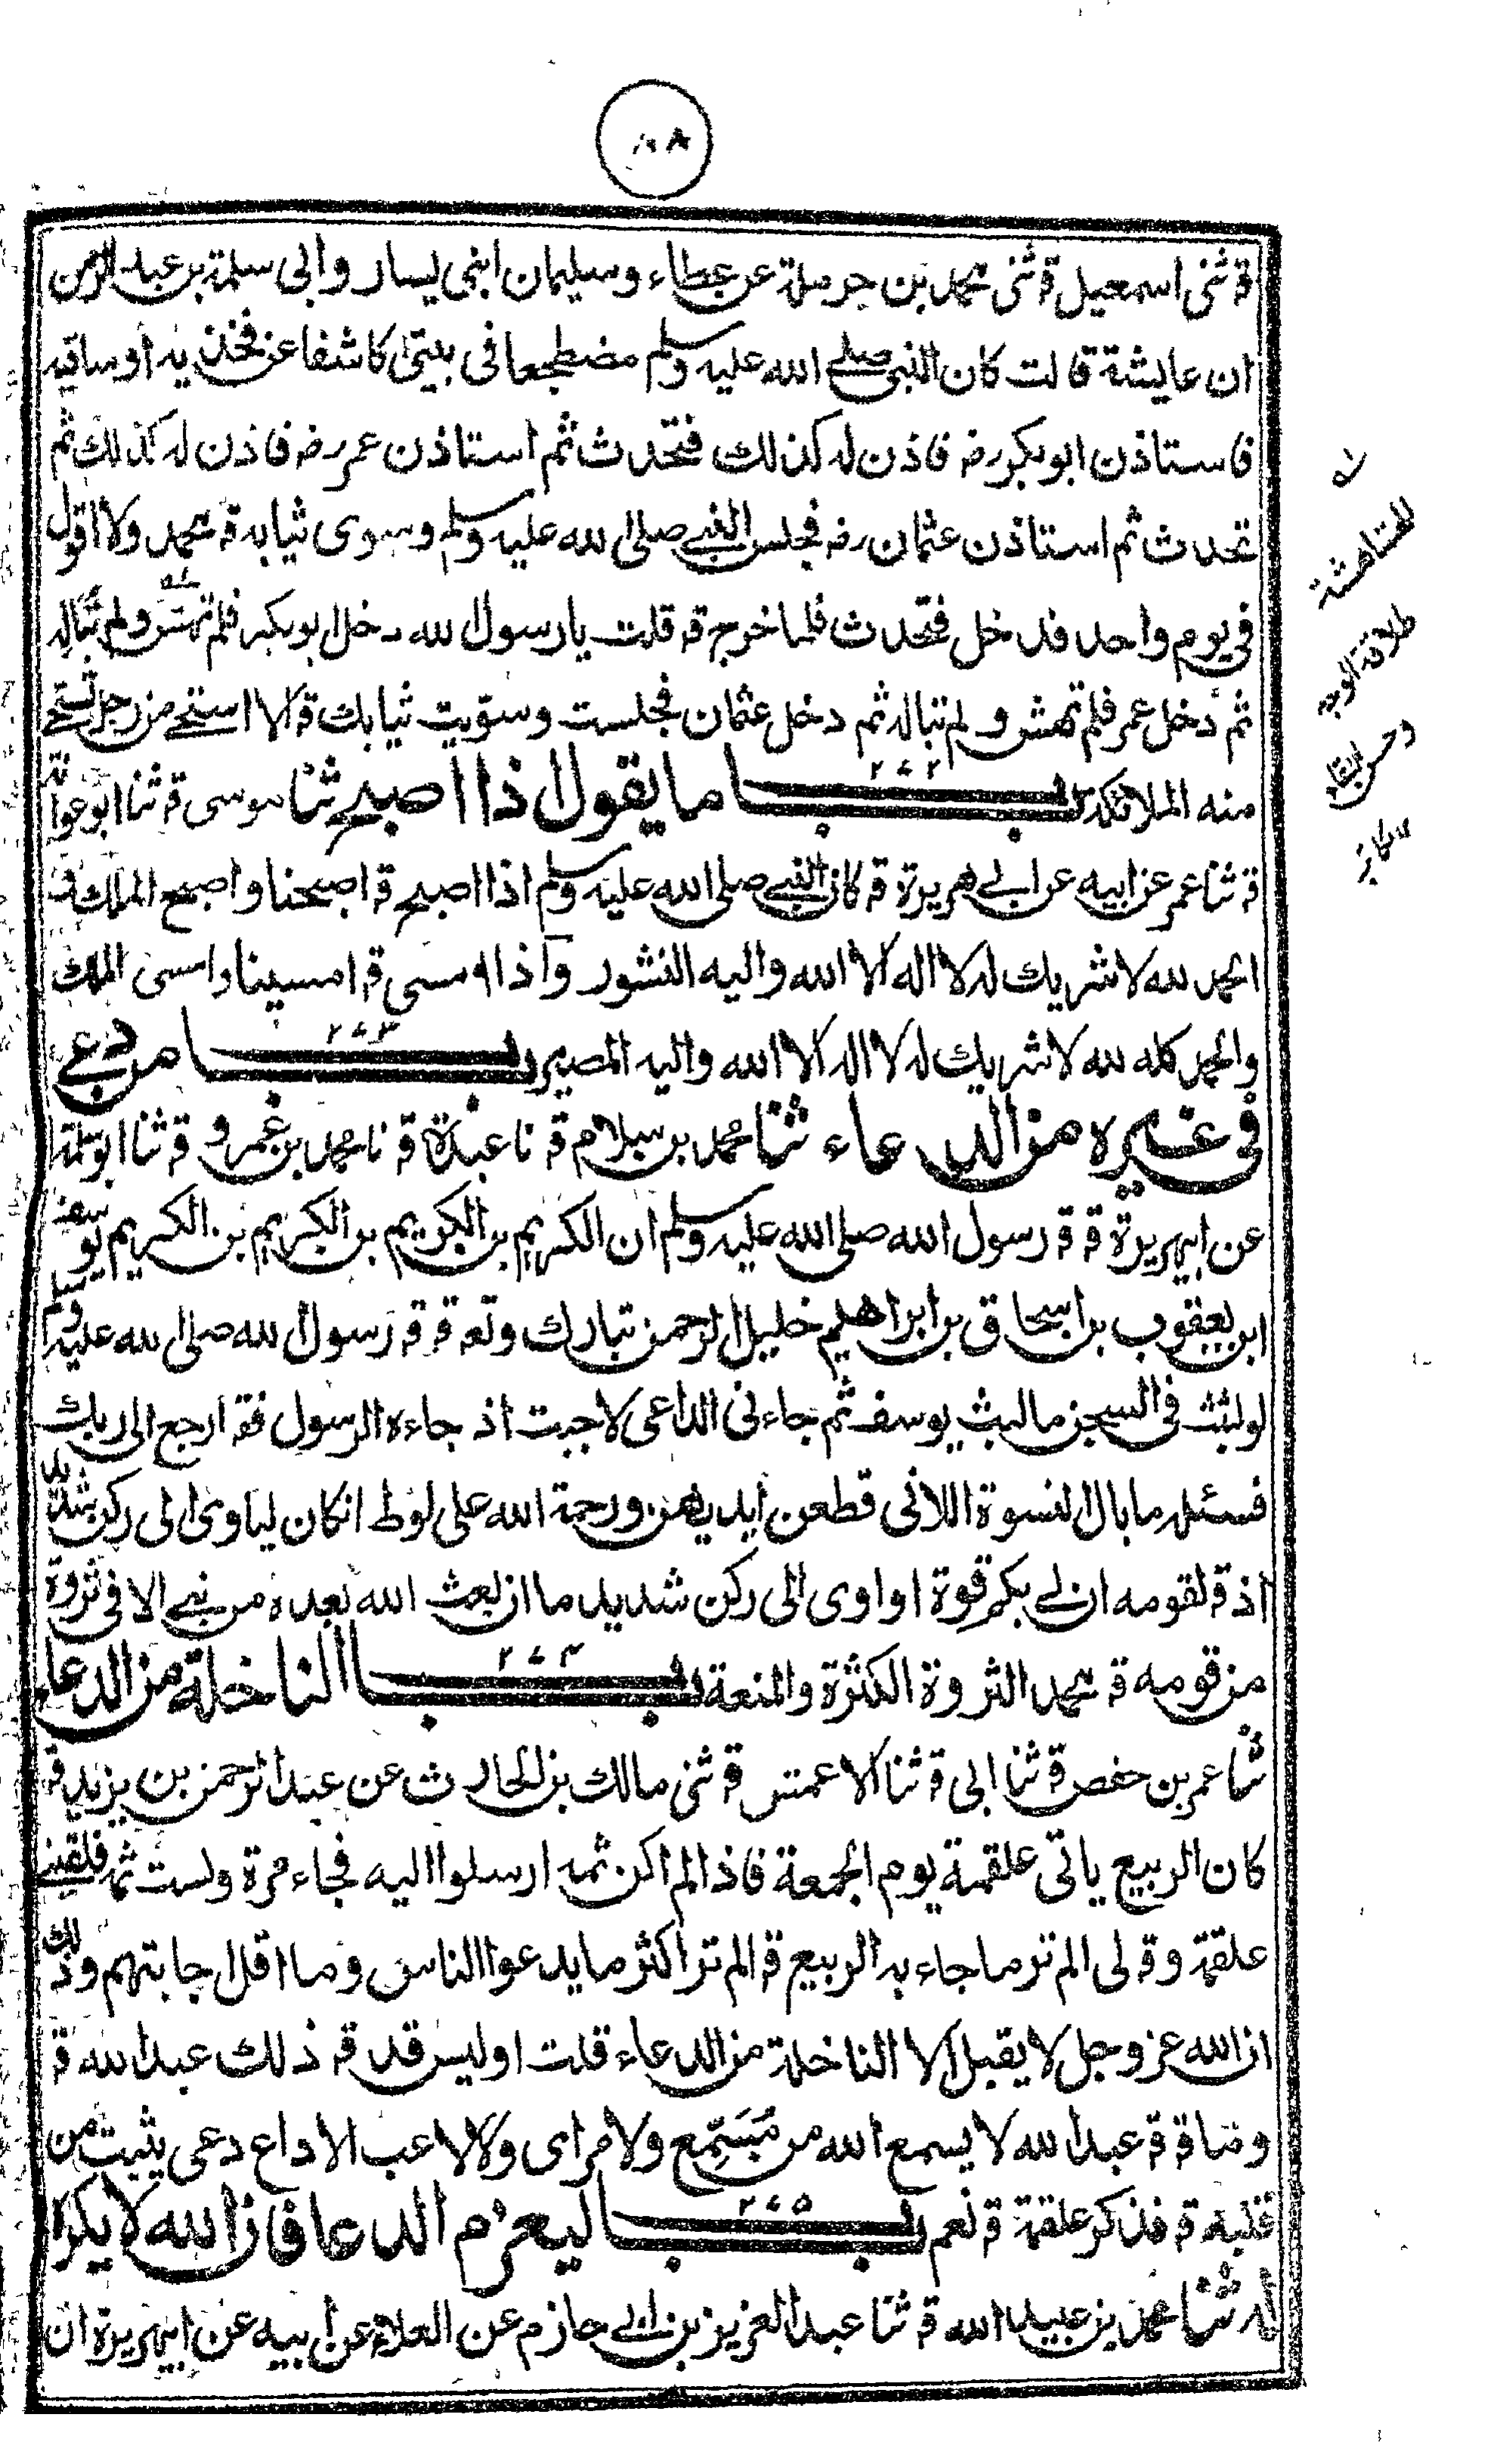 ١٠٨
قـ ثنى اسمعيل قـ ثنى محمد بن حرملة عن عطاء وسليمان ابنى يسار وابى سلمة بن عبد الرحمن
ان عايشة قالت كان النبى صلى الله عليه وسلم مضطجعا فى بيتى كاشفا عن فخذيه أو ساقيه
فاستاذن ابو بكر رضـ فاذن له كذلك فتحدث ثم استاذن عمر رضـ فاذن له كذلك ثم
تحدث ثم استاذن عثمان رضـ فجلس النبى صلى الله عليه وسلم وسوى ثيابه قـ محمد ولا اقول
فى يوم واحد فدخل فتحدث فلما خرج قـ قلت يا رسول الله دخل ابو بكر فلم تهش ولم تباله
ثم دخل عمر فلم تهش ولم تباله ثم دخل عثمان فجلست وسوّيت ثيابك قـ الا استحى من رجل تستحى
منه الملائكة باب ٢٧٢ ما يقول اذا اصبح ثنا موسى قـ ثنا ابو عوانة
قـ ثنا عمر عن ابيه عن ابى هريرة قـ كان النبى صلى الله عليه وسلم اذا اصبح قـ اصبحنا واصبح الملك لله
الحمد لله لا شريك له لا اله الا الله واليه النشور واذا امسى قـ امسينا وامسى الملك
والحمد كله لله لا شريك له لا اله الا الله واليه المصير باب ٢٧٣ من دعى
فى غيره من الدعاء ثنا محمد بن سلام قـ نا عبدة قـ نا محمد بن عمرو قـ ثنا ابو سلمة
عن ابيهريرة قـ قـ رسول الله صلى الله عليه وسلم ان الكريم بن الكريم بن الكريم بن الكريم يوسف
ابن يعقوب بن اسحاق بن ابراهيم خليل الرحمن تبارك وتعـ قـ قـ رسول الله صلى الله عليه وسلم
لو لبثت فى السجن ما لبث يوسف ثم جاءنى الداعى لاجبت اذ جاءه الرسول فقـ ارجع الى ربك
فسئله ما بال النسوة اللاتى قطعن ايديهن ورحمة الله على لوط انكان لياوى الى ركن شديد
اذ قـ لقومه ان لى بكم قوة او اوى الى ركن شديد ما ان بعث الله بعده من نبى الا فى ثروة
من قومه قـ محمد الثروة الكثرة والمنعة باب ٢٧٤ الناخلة من الدعاء
ثنا عمر بن حفص قـ ثنا ابى قـ ثنا الاعمش قـ ثنى مالك بن الحارث عن عبد الرحمن بن يزيد قـ
كان الربيع ياتى علقمة يوم الجمعة فاذا لم اكن ثمه ارسلوا اليه فجاء مرة ولست ثمه فلقينى
علقمة وقـ لى الم تر ما جاء به الربيع قـ الم تر اكثر ما يدعوا الناس وما اقل اجابتهم وذلك
ان الله عز وجل لا يقبل الا الناخلة من الدعاء قلت اوليس قد قـ ذلك عبد الله قـ
وما قـ قـ عبد الله لا يسمع الله من مُسَمِّع ولا مراى ولا لاعب الا داع دعى يثبت من
قلبه قـ فذكر علقمة قـ نعم باب ٢٧٥ ليعزم الدعا فان الله لا يكره
له ثنا محمد بن عبيد الله قـ ثنا عبد العزيز بن ابى حازم عن العلاء عن ابيه عن ابيهريرة ان
له
الهشاشة
طلاقة الوجه
وحسن اللقاء